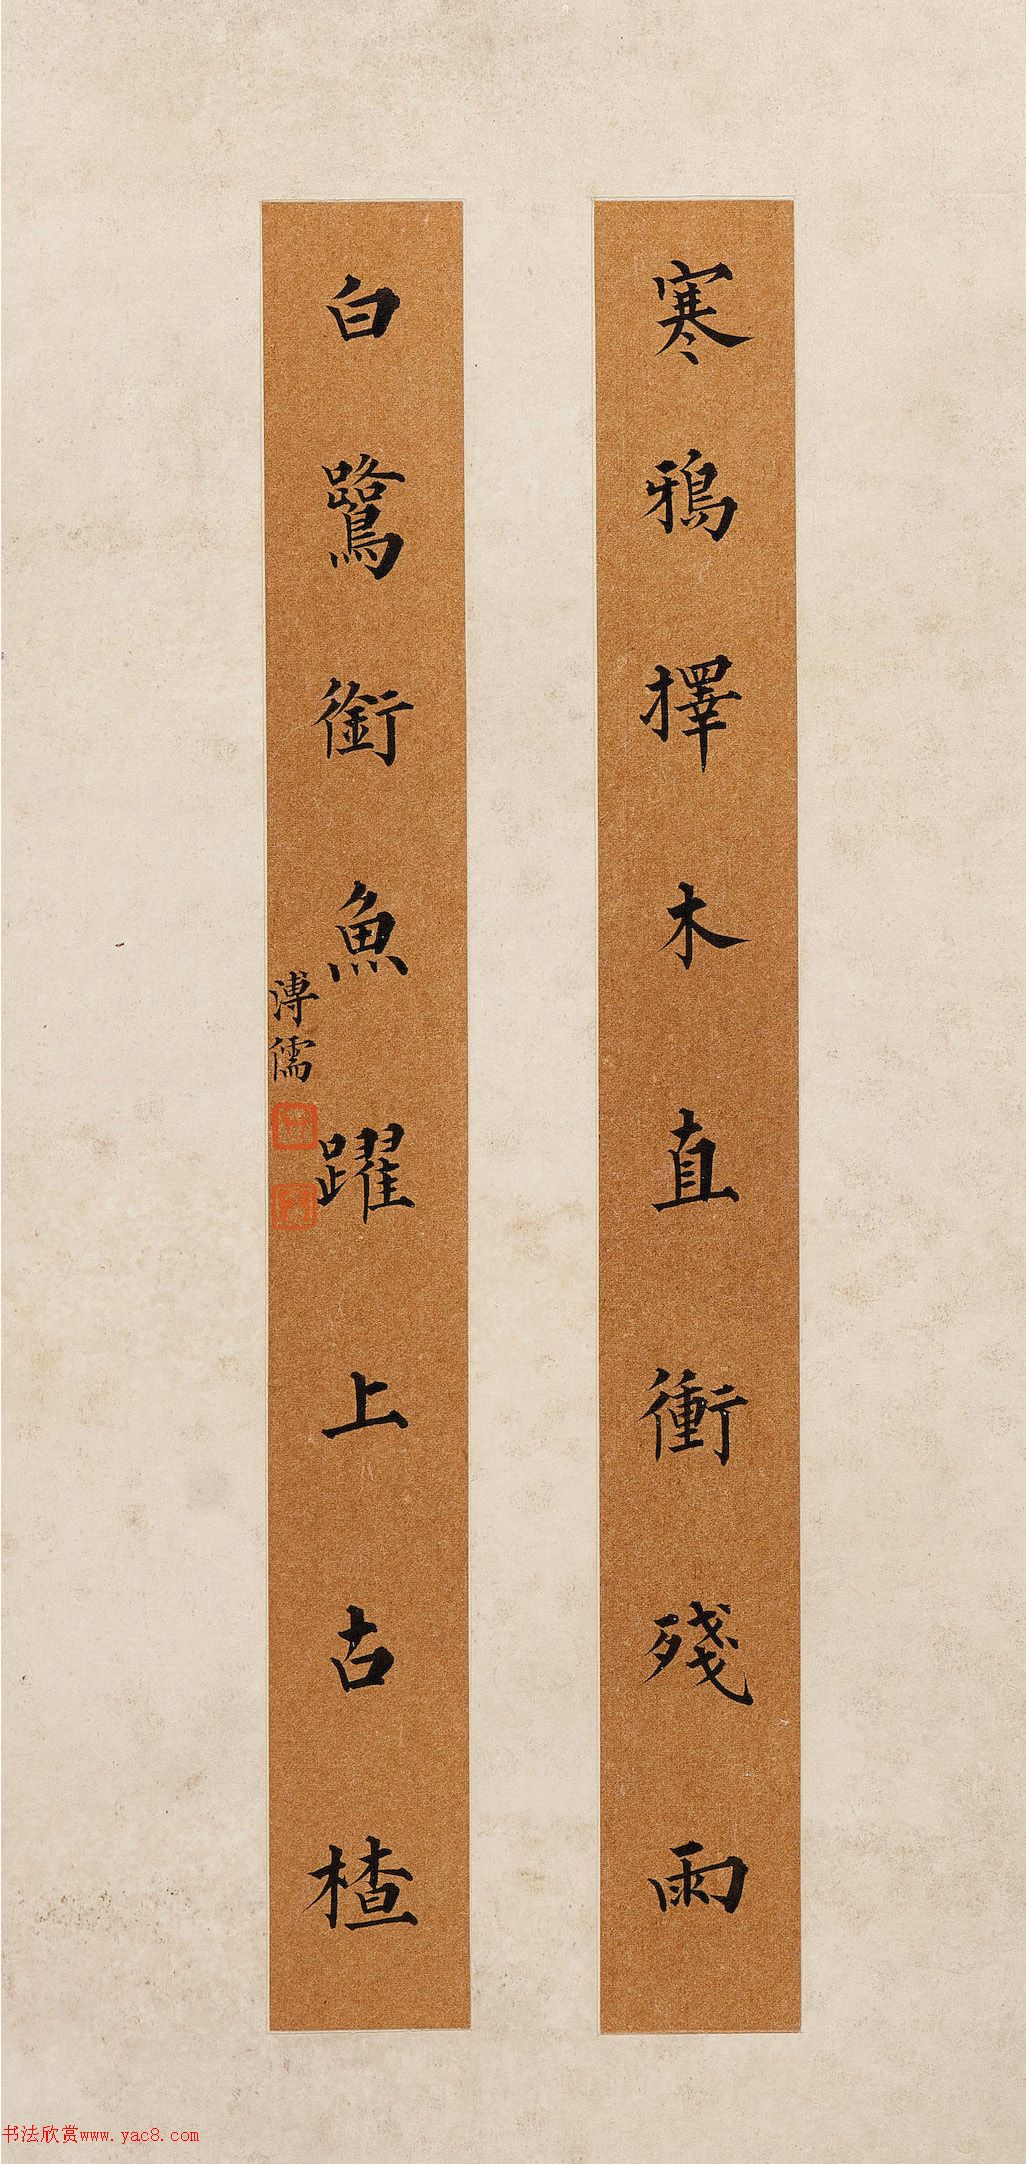 寒鴉擇木直衝殘雨
白鷺銜魚躍上古楂
溥儒
书法欣赏www.yac8.com